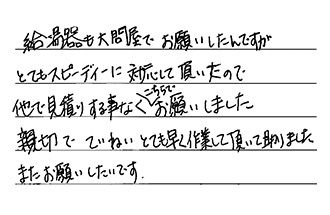 給湯器も大問屋でお願いしたんですが
とてもスピーディーに対応して頂いたので
他で見積りする事なくこちらでお願いしました
親切で ていねい とても早く作業して頂いて助かりました
またお願いしたいです.